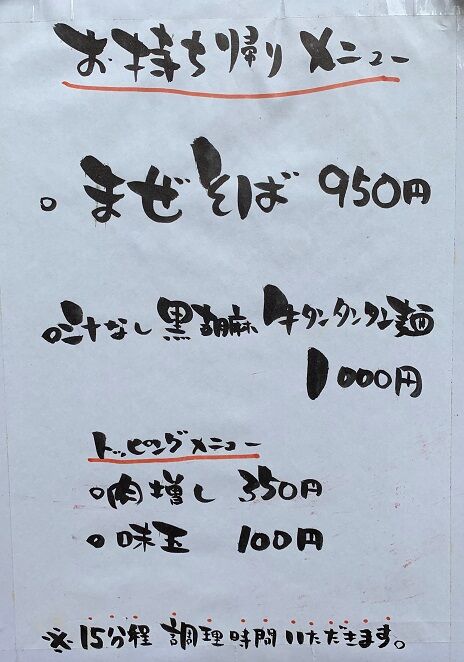 お持ち帰りメニュー
。まぜそば 950円
。汁なし黒胡麻牛タンタンタン麺
1000円
トッピングメニュー
。肉増し 350円
。味玉 100円
※15分程 調理時間いただきます。